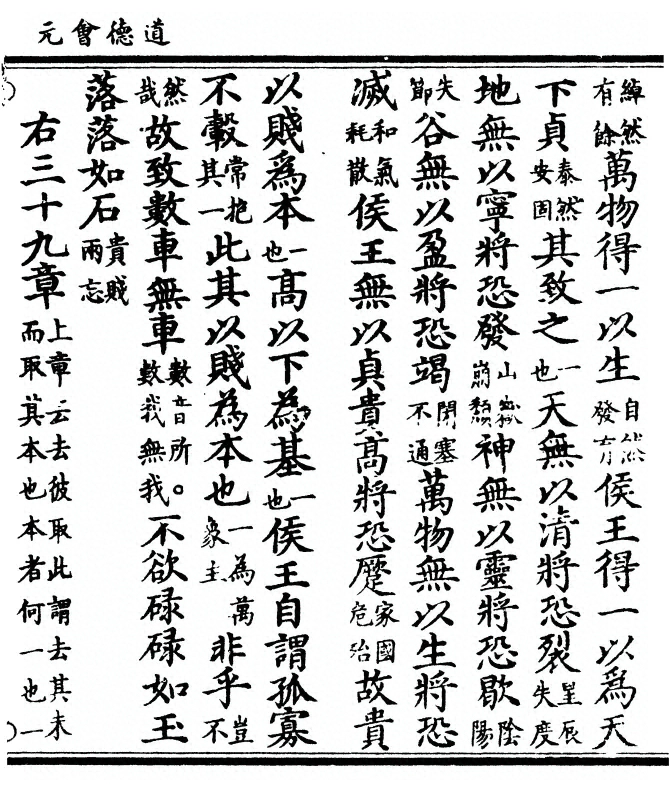 道德會元
綽然有餘萬物得一以生自然發育侯王得一以為天
下貞泰然安固其致之一也天無以清將恐裂星辰失度
地無以寧將恐發山嶽崩頹神無以靈將恐歇陰陽
失節谷無以盈將恐竭閉塞不通萬物無以生將恐
滅和氣耗散侯王無以貞貴高將恐蹷家國危殆故貴
以賤爲本一也高以下為基一也侯王自謂孤寡
不轂常抱其一此其以賤為本也一為萬象主非乎豈不
然哉故致數車無車數音所。數我無我不欲碌碌如玉
落落如石貴賤兩忘
右三十九章上章云去彼取此謂去其末而取其本也本者何一也一